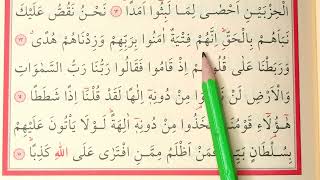 الْحِزْبَيْنِ اَحْصٰى لِمَا لَبِثُٓوا اَمَدًا ﴿١٢﴾ نَحْنُ نَقُصُّ عَلَيْكَ
نَبَاَهُمْ بِالْحَقِّۜ اِنَّهُمْ فِتْيَةٌ اٰمَنُوا بِرَبِّهِمْ وَزِدْنَاهُمْ هُدًىۗ ﴿١٣﴾
وَرَبَطْنَا عَلٰى قُلُوبِهِمْ اِذْ قَامُوا فَقَالُوا رَبُّنَا رَبُّ السَّمٰوَاتِ
وَالْاَرْضِ لَنْ نَدْعُوَا۬ مِنْ دُونِهٖٓ اِلٰهًا لَقَدْ قُلْنَٓا اِذًا شَطَطًا ﴿١٤﴾
هٰٓؤُ۬لَٓاءِ قَوْمُنَا اتَّخَذُوا مِنْ دُونِهٖٓ اٰلِهَةًۜ لَوْلَا يَأْتُونَ عَلَيْهِمْ
بِسُلْطَانٍ بَيِّنٍۜ فَمَنْ اَظْلَمُ مِمَّنِ افْتَرٰى عَلَى اللّٰهِ كَذِبًاۜ ﴿١٥﴾